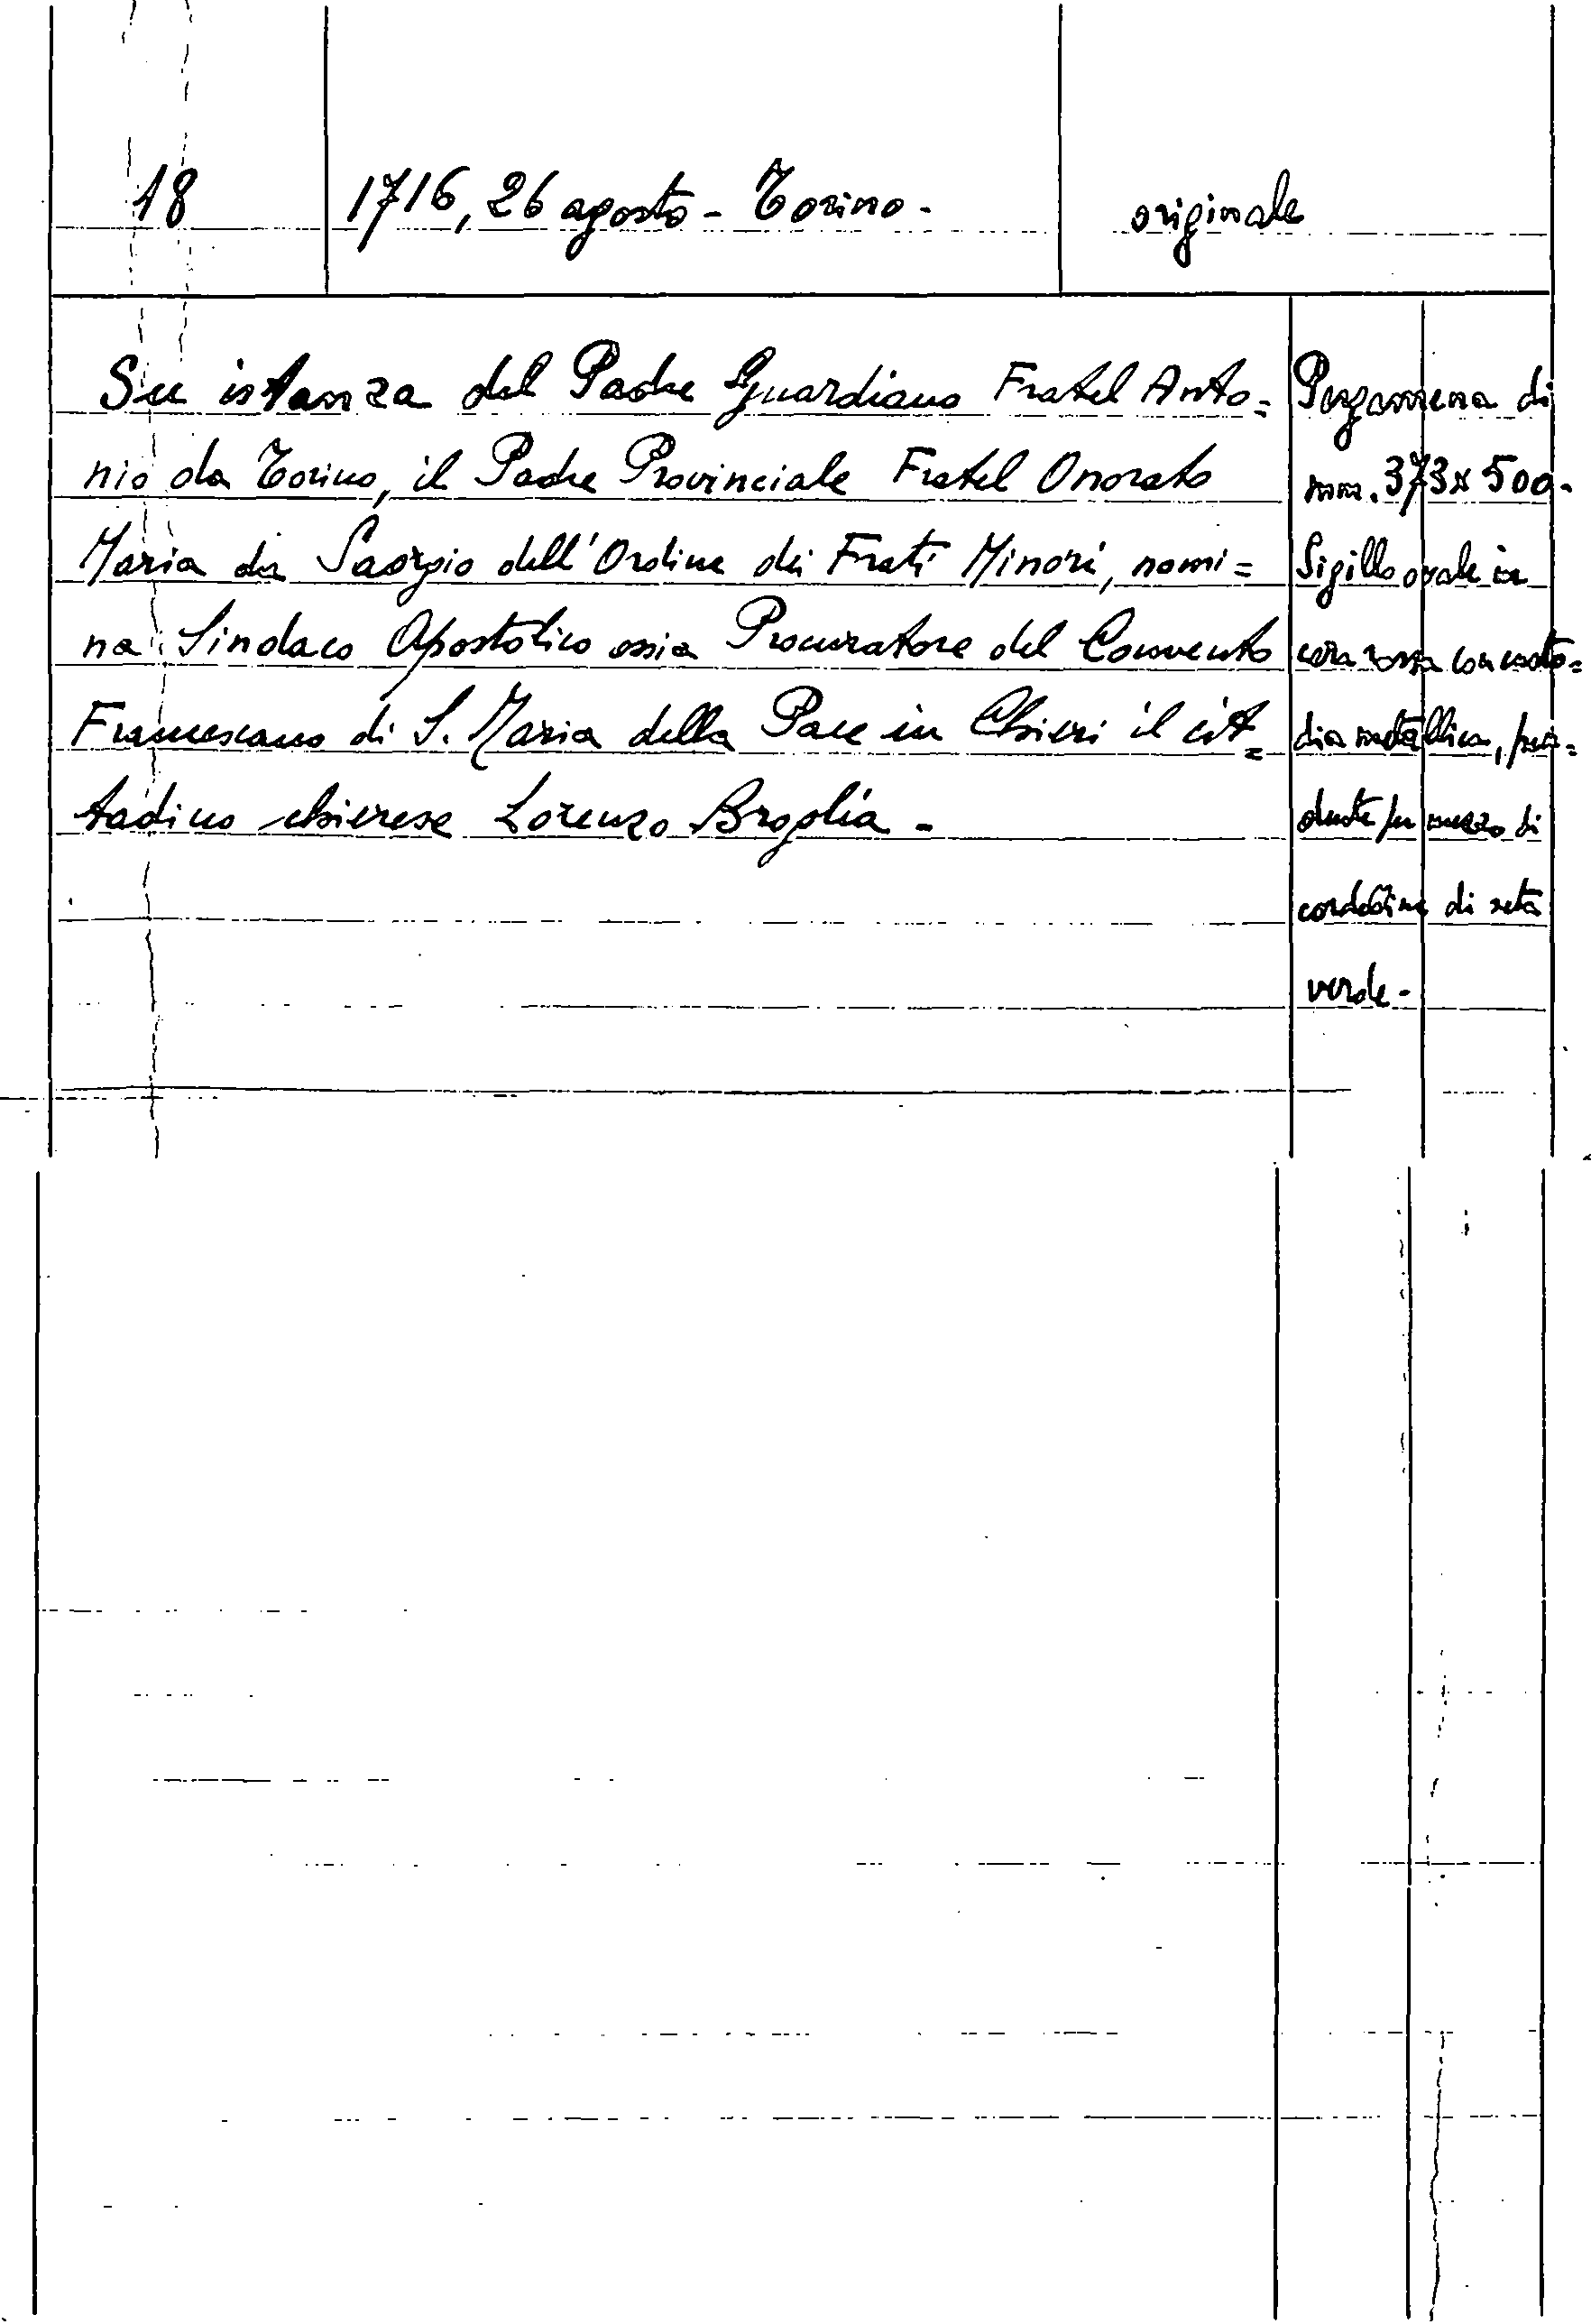 18
1716, 26 agosto - Torino -
originale
Su istanza del Padre Guardiano Fratel Anto=
nio da Torino, il Padre Provinciale Fratel Onorato
Maria da Saorgio dell'Ordine dei Frati Minori, nomi=
na Sindaco Apostolico ossia Procuratore del Convento
Francescano di S. Maria della Pace in Chieri il cit=
tadino chierese Lorenzo Broglia -
Pergamena di
mm. 373 x 500 -
Sigillo ovale in
cera rossa con custo=
dia metallica, pen=
dente per mezzo di
cordoncino di seta
verde -